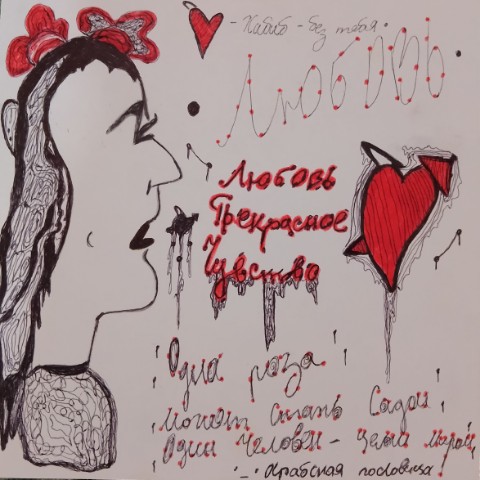 - Хабиб - без тебя
Любовь
Любовь
Прекрасное
Чувство
Одна роза
может стать Садом
Один Человек - целым миром
Арабская пословица!